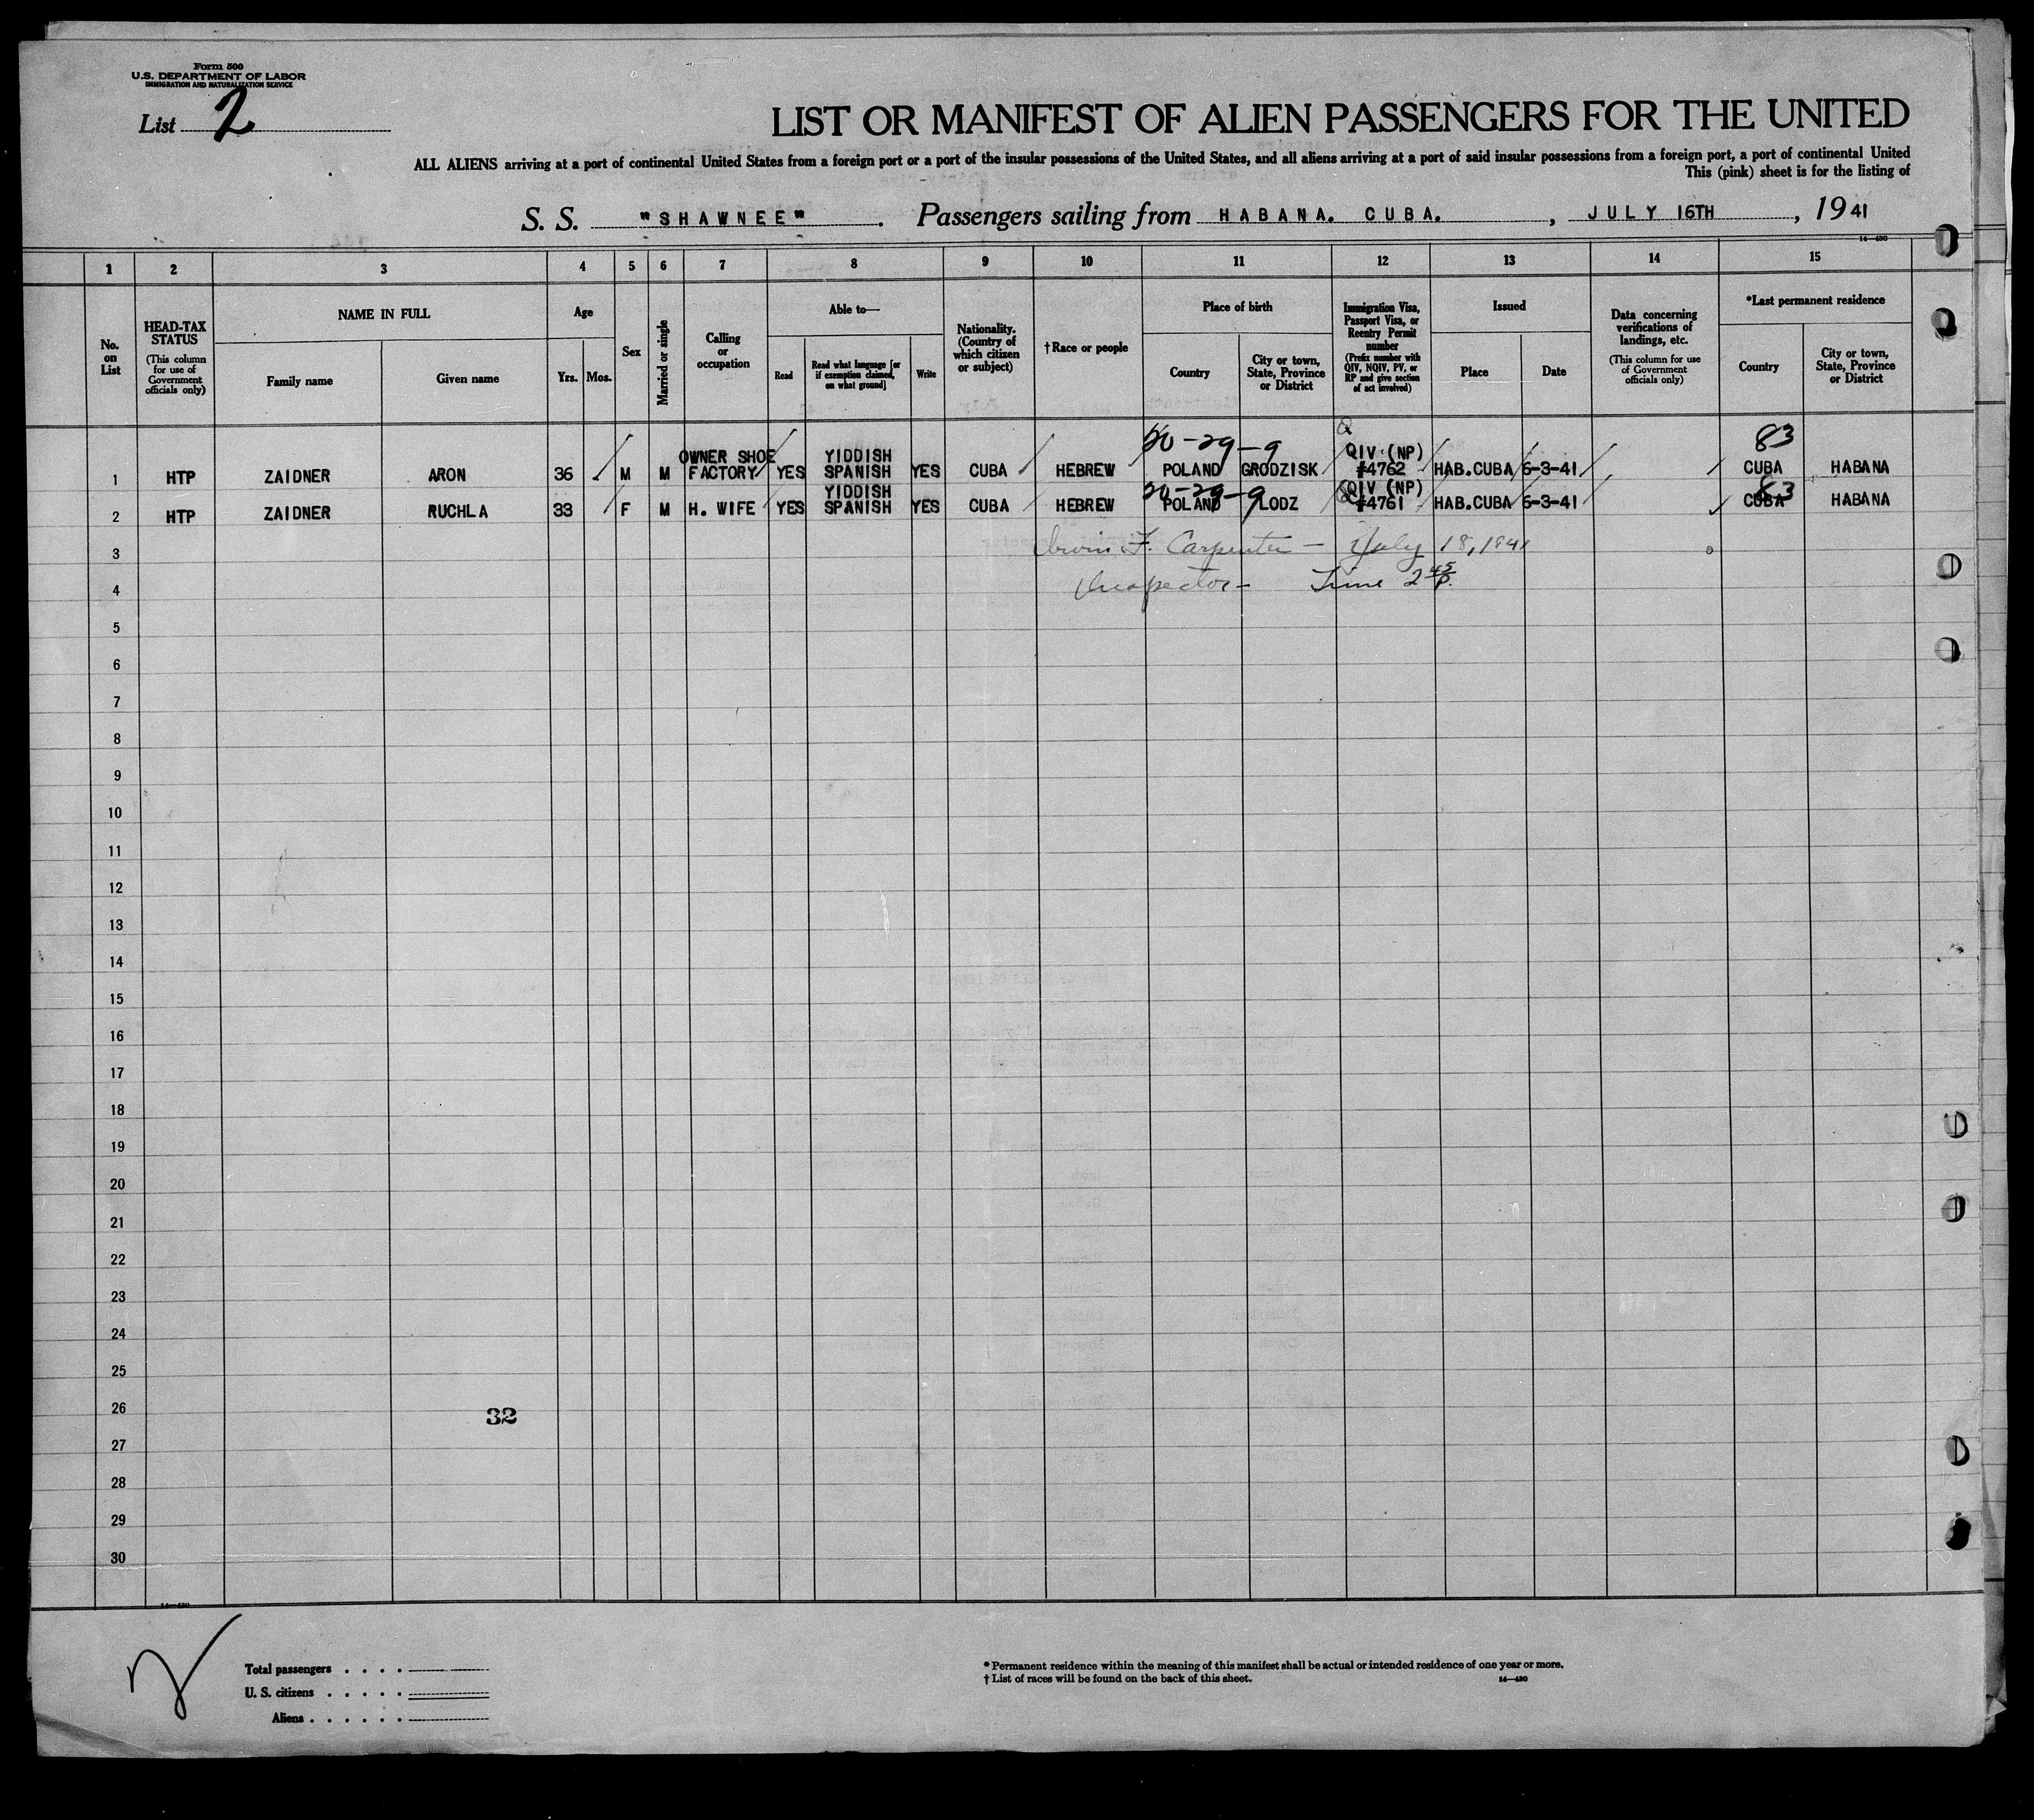 Form 500
U.S. DEPARTMENT OF LABOR
IMMIGRATION AND NATURALIZATION SERVICE
List 2
LIST OR MANIFEST OF ALIEN PASSENGERS FOR THE UNITED
ALL ALIENS arriving at a port of continental United States from a foreign port or a port of the insular possessions of the United States, and all aliens arriving at a port of said insular possessions from a foreign port, a port of continental United
This (pink) sheet is for the listing of
S. S. "SHAWNEE". Passengers sailing from HABANA. CUBA. , JULY 16TH , 1941
14—430
1 2 3 4 5 6 7 8 9 10 11 12 13 14 15
No. on List
HEAD-TAX STATUS
(This column for use of Government officials only)
NAME IN FULL
Family name
Given name
Age
Yrs. Mos.
Sex
Married or single
Calling or occupation
Able to—
Read
Read what language [or if exemption claimed, on what ground]
Write
Nationality. (Country of which citizen or subject)
†Race or people
Place of birth
Country
City or town, State, Province or District
Immigration Visa, Passport Visa, or Reentry Permit number
(Prefix number with QIV, NQIV, PV, or RP and give section of act involved)
Issued
Place
Date
Data concerning verifications of landings, etc.
(This column for use of Government officials only)
*Last permanent residence
Country
City or town, State, Province or District
20-29-9 Q 83
1 HTP ZAIDNER ARON 36 M M OWNER SHOE FACTORY YES YIDDISH SPANISH YES CUBA HEBREW POLAND GRODZISK QIV (NP) #4762 HAB.CUBA 6-3-41 CUBA HABANA
20-29-9 83
2 HTP ZAIDNER RUCHLA 33 F M H. WIFE YES YIDDISH SPANISH YES CUBA HEBREW POLAND LODZ QIV (NP) #4761 HAB.CUBA 6-3-41 CUBA HABANA
3 Irwin F. Carpenter - July 18, 1941
4 Inspector - Time 2 45 p.
5
6
7
8
9
10
11
12
13
14
15
16
17
18
19
20
21
22
23
24
25
26 32
27
28
29
30
14—430
2
Total passengers
U. S. citizens
Aliens
*Permanent residence within the meaning of this manifest shall be actual or intended residence of one year or more.
†List of races will be found on the back of this sheet.
14—430